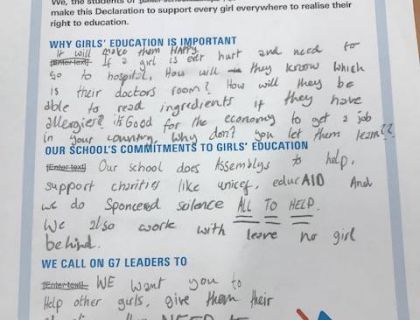 We, the students of
make this Declaration to support every girl everywhere to realise their
right to education.
WHY GIRLS' EDUCATION IS IMPORTANT
It will make them HAPPY.
[Enter text] If a girl is ever hurt and need to
go to hospital, How will they know which
is their doctors room? How will they be
able to read ingredients if they have
allergies? its Good for the economy to get a job
in your country. Why don't you let them learn??
OUR SCHOOL'S COMMITMENTS TO GIRLS' EDUCATION
[Enter text] Our school does Assemblys to help,
support charities like unicef, educAID And
we do Sponcered salence ALL TO HELP.
We also work with leave no girl
behind.
WE CALL ON G7 LEADERS TO
[Enter text] WE want you to
Help other girls, give them their